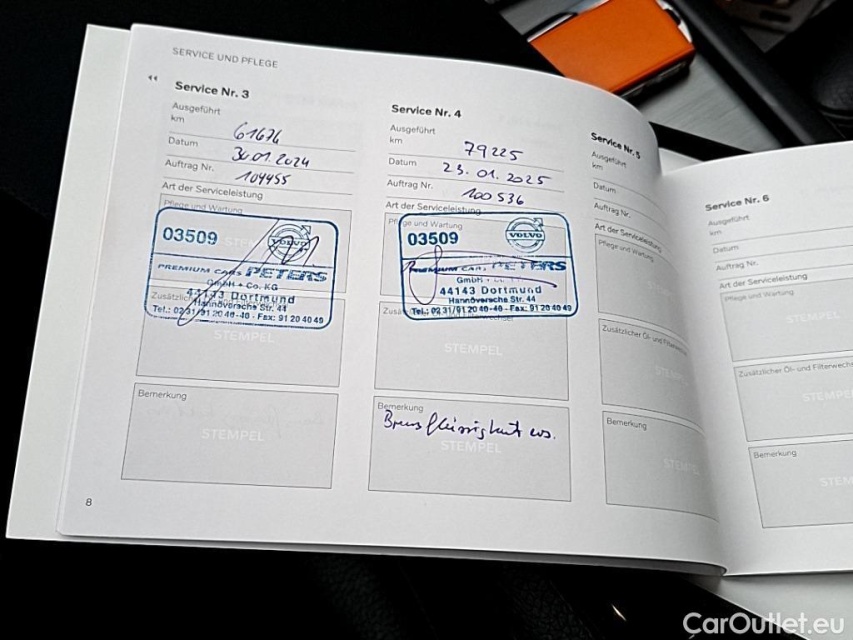 SERVICE UND PFLEGE
Service Nr. 3
Ausgeführt
km 61676
Datum 30.01.2024
Auftrag Nr. 104455
Art der Serviceleistung
Pflege und Wartung
03509
VOLVO
PREMIUM CARS PETERS
GmbH + Co. KG
44143 Dortmund
Hannöversche Str. 44
Tel.: 02 31/91 20 40-40 - Fax: 91 20 40 49
Bemerkung
STEMPEL
8
Service Nr. 4
Ausgeführt
km 79225
Datum 23.01.2025
Auftrag Nr. 100536
Art der Serviceleistung
Pflege und Wartung
03509
VOLVO
PREMIUM CARS PETERS
GmbH
44143 Dortmund
Hannöversche Str. 44
Tel.: 02 31/91 20 40-40 - Fax: 91 20 40 49
STEMPEL
Bemerkung
Bremsflüssigkeit ers.
STEMPEL
Service Nr. 5
Ausgeführt
km
Datum
Auftrag Nr.
Art der Serviceleistung
Pflege und Wartung
Zusätzlicher Öl- und
Bemerkung
Service Nr. 6
Ausgeführt
km
Datum
Auftrag Nr.
Art der Serviceleistung
Pflege und Wartung
STEMPEL
Zusätzlicher Öl- und Filterwechs
STEMP
Bemerkung
STEM
CarOutlet.eu